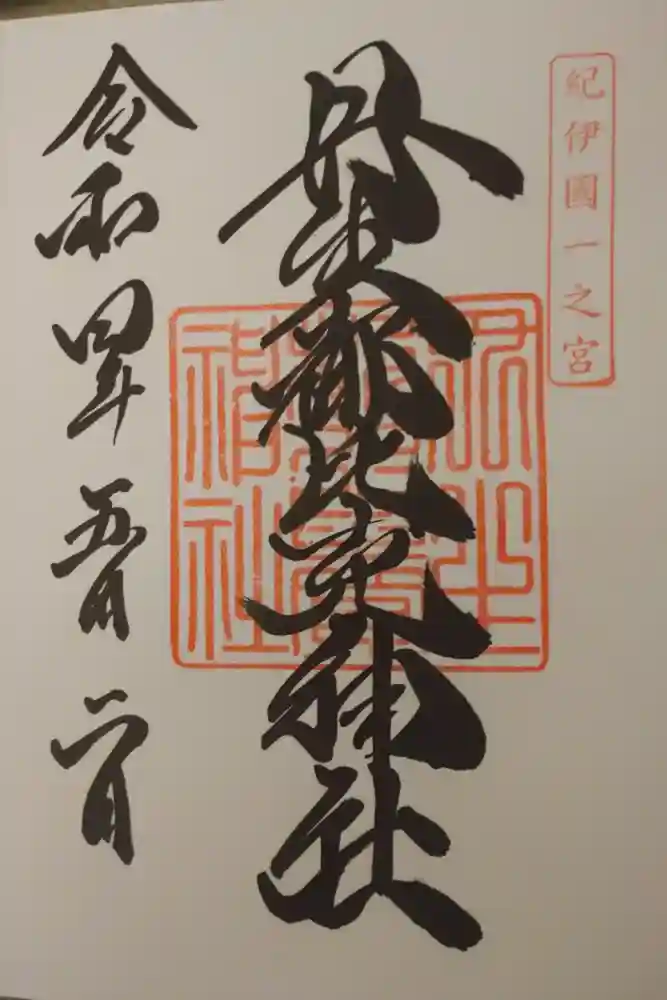 紀伊國一之宮
丹生都比売神社
丹生
神社
令和四年五月二日